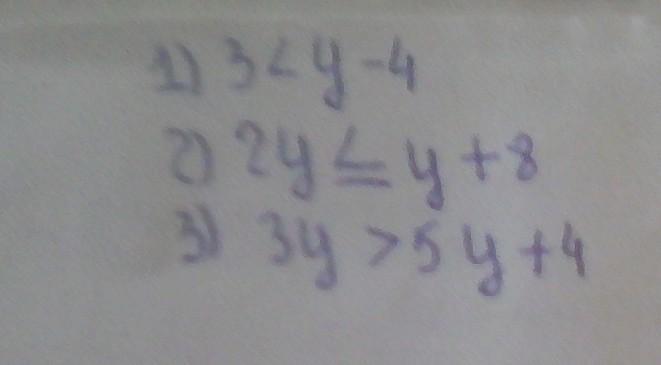 1) 3 < y - 4
2) 2y ≤ y + 8
3) 3y > 5y + 4